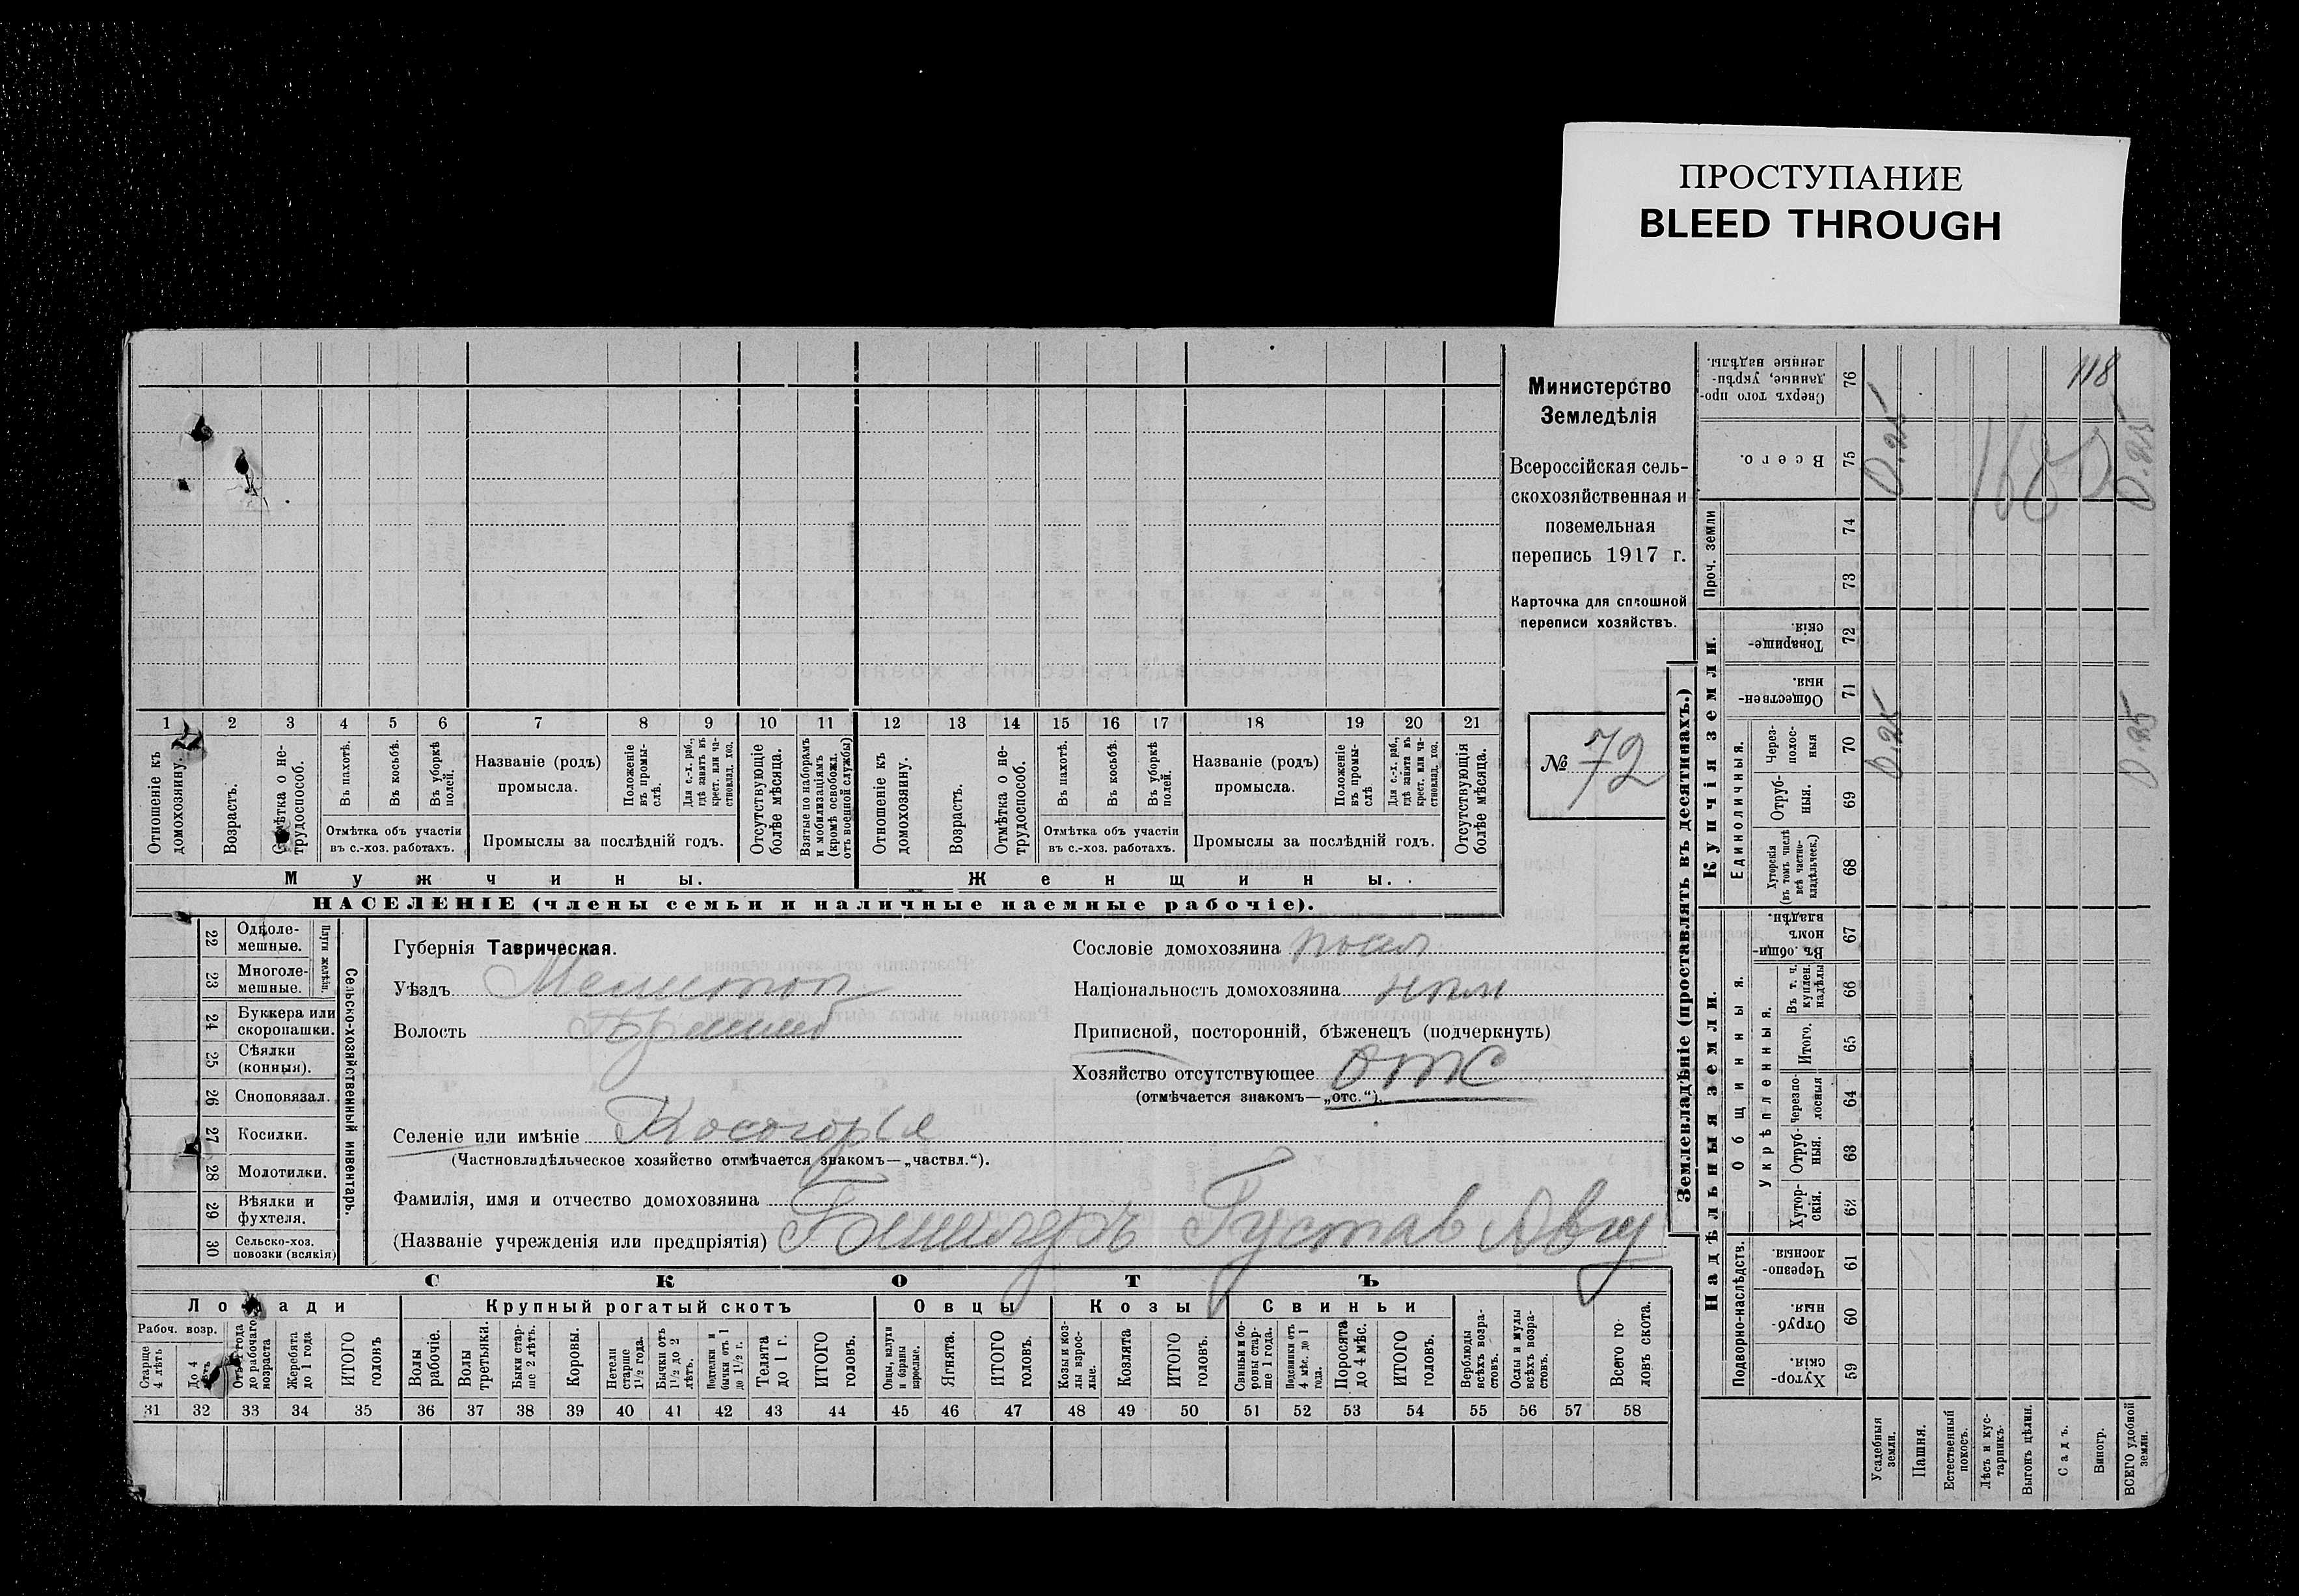 ПРОСТУПАНИЕ
BLEED THROUGH
118
Министерство
Земледѣлія
Всероссійская сель-
скохозяйственная и
поземельная
перепись 1917 г.
Карточка для сплошной
переписи хозяйствъ.
№ 72
1 2 3 4 5 6 7 8 9 10 11 12 13 14 15 16 17 18 19 20 21
Отношеніе къ домохозяину.
Возрастъ.
Отмѣтка о не-трудоспособ.
Въ пахотѣ.
Въ косьбѣ.
Въ уборкѣ полей.
Отмѣтка объ участіи
въ с.-хоз. работахъ.
Названіе (родъ)
промысла.
Положеніе въ промы-слѣ.
Для с.-х. раб., гдѣ занятъ въ крест. или ча-стновлад. хоз.
Промыслы за послѣдній годъ.
Отсутствующіе болѣе мѣсяца.
Взятые по наборамъ и мобилизаціямъ (кромѣ освобожд. отъ военной службы)
Отношеніе къ домохозяину.
Возрастъ.
Отмѣтка о не-трудоспособ.
Въ пахотѣ.
Въ косьбѣ.
Въ уборкѣ полей.
Отмѣтка объ участіи
въ с.-хоз. работахъ.
Названіе (родъ)
промысла.
Положеніе въ промы-слѣ
Для с.-х. раб., гдѣ занята въ крест. или ча-стновлад. хоз.
Промыслы за послѣдній годъ.
Отсутствующія болѣе мѣсяца.
Мужчины. Женщины.
НАСЕЛЕНІЕ (члены семьи и наличные наемные рабочіе).
22 Одноле-мешные.
23 Многоле-мешные.
Плуги желѣзн.
24 Буккера или скоропашки.
25 Сѣялки (конныя).
26 Сноповязал.
27 Косилки.
28 Молотилки.
29 Вѣялки и фухтеля.
30 Сельско-хоз. повозки (всякія)
Сельско-хозяйственный инвентарь.
Губернія Таврическая.
Уѣздъ Мелитоп
Волость
Сословіе домохозяина посел
Національность домохозяина нѣм
Приписной, посторонній, бѣженецъ (подчеркнуть)
Хозяйство отсутствующее отс
(отмѣчается знакомъ—„отс.“).
Селеніе или имѣніе Косогорье
(Частновладѣльческое хозяйство отмѣчается знакомъ—„частвл.“).
Фамилія, имя и отчество домохозяина
(Названіе учрежденія или предпріятія) Густав Авгу
СКОТЪ
Лошади Крупный рогатый скотъ Овцы Козы Свиньи
Рабоч. возр.
Старше 4 лѣтъ
До 4 лѣтъ
Отъ 1 года до рабочаго возраста
Жеребята до 1 года
ИТОГО головъ
Волы рабочіе.
Волы третьяки.
Быки стар-ше 2 лѣтъ.
Коровы.
Нетели старше 1 1/2 года.
Бычки отъ 1 1/2 до 2 лѣтъ.
Подтелки и бычки отъ 1 до 1 1/2 г.
Телята до 1 г.
ИТОГО головъ.
Овцы, валухи и бараны взрослые.
Ягнята.
ИТОГО головъ.
Козы и коз-лы взрос-лые.
Козлята
ИТОГО головъ.
Свиньи и бо-ровы стар-ше 1 года.
Подсвинки отъ 4 мѣс. до 1 года.
Поросята до 4 мѣс.
ИТОГО головъ.
Верблюды всѣхъ возра-стовъ.
Ослы и мулы всѣхъ возра-стовъ.
Всего го-ловъ скота.
31 32 33 34 35 36 37 38 39 40 41 42 43 44 45 46 47 48 49 50 51 52 53 54 55 56 57 58
Землевладѣніе (проставлять въ десятинахъ.)
Надѣльныя земли.
Купчія земли.
Проч. земли
Подворно-наслѣдств.
Общинныя.
Укрѣпленныя.
Единоличныя.
Хутор-скія. 59
Отруб-ныя. 60
Черезпо-лосныя. 61
Хутор-скія. 62
Отруб-ныя. 63
Черезпо-лосныя 64
Итого. 65
Въ т. ч. куплен. надѣлы 66
Въ общин-номъ владѣн. 67
Хуторскія (въ томъ числѣ всѣ частно-владѣльческ.) 68
Отруб-ныя. 69
Через-полос-ныя 70
Обществен-ныя. 71
Товарище-скія. 72
73
74
Всего. 75
Сверхъ того про-данные, укрѣп-ленные надѣлы. 76
Усадебныя земли. 0.25 0.25
Пашня.
Естественный покосъ.
Лѣсъ и кус-тарникъ.
Выгонъ цѣлин.
Садъ.
Виногр.
ВСЕГО удобной земли. 0.25 0.25